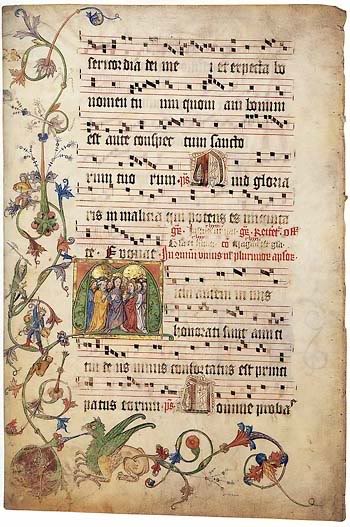 sericordia dei me i et expecta bo
nomen tu um quoni am bonum
est ante conspec tum sancto
rum tuo rum ps Quid gloria
ris in malicia qui potens es iniquita
te Euouae In uniuus ut plurimor apostor
ichi autem nimis
honorati sunt amici
tui de us nimis confortatus est princi
patus eorum ps Domine probas